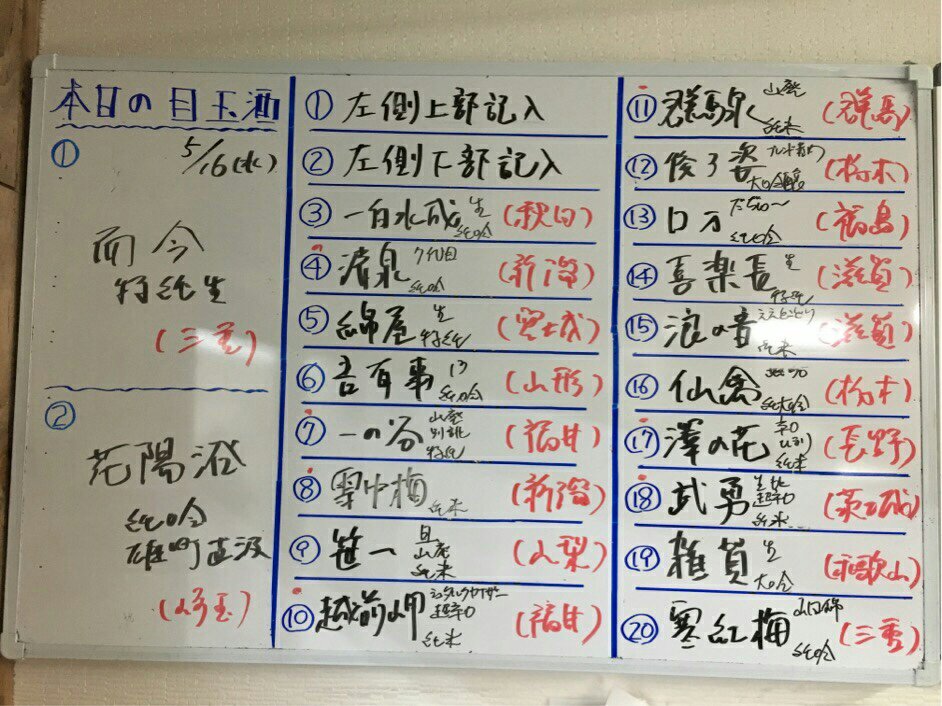 本日の目玉酒
①
5/16(水)
而今
特純生
(三重)
②
花陽浴
純吟
雄町直汲
(埼玉)
① 左側上部記入
② 左側下部記入
③ 一白水成 生 純吟 (秋田)
④ 清泉 7代目 純吟 (新潟)
⑤ 綿屋 生 特純 (宮城)
⑥ 吾有事 純吟 (山形)
⑦ 一の谷 山廃 別誂 特純 (福井)
⑧ 雪中梅 純米 (新潟)
⑨ 笹一 旦 山廃 純米 (山梨)
⑩ 越前岬 超辛口 純米 (福井)
⑪ 群馬泉 山廃 純米 (群馬)
⑫ 俊子姿 大吟醸 (栃木)
⑬ ロ万 だぢゅー 純吟 (福島)
⑭ 喜楽長 生 特純 (滋賀)
⑮ 浪の音 ええとこどり 純米 (滋賀)
⑯ 仙禽 純大吟 (栃木)
⑰ 澤の花 辛口 純米 (長野)
⑱ 武勇 生酛 超辛口 純米 (茨城)
⑲ 雑賀 生 大吟 (和歌山)
⑳ 寒紅梅 山田錦 純吟 (三重)